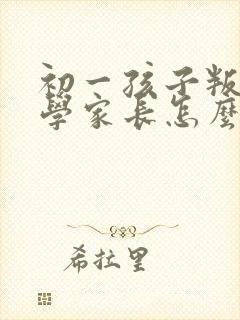 初一孩子叛
學家長怎麼
希拉里